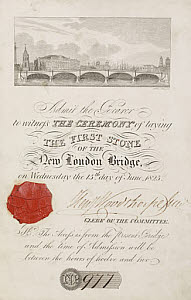 Admit the Bearer
to witness THE CEREMONY of laying
THE FIRST STONE
OF THE
New London Bridge,
on Wednesday the 15th day of June, 1825.
Henry Woodthorpe Junr
CLERK OF THE COMMITTEE.
N.B. The Access is from the present Bridge
and the time of Admission will be
between the hours of twelve and two
No 977